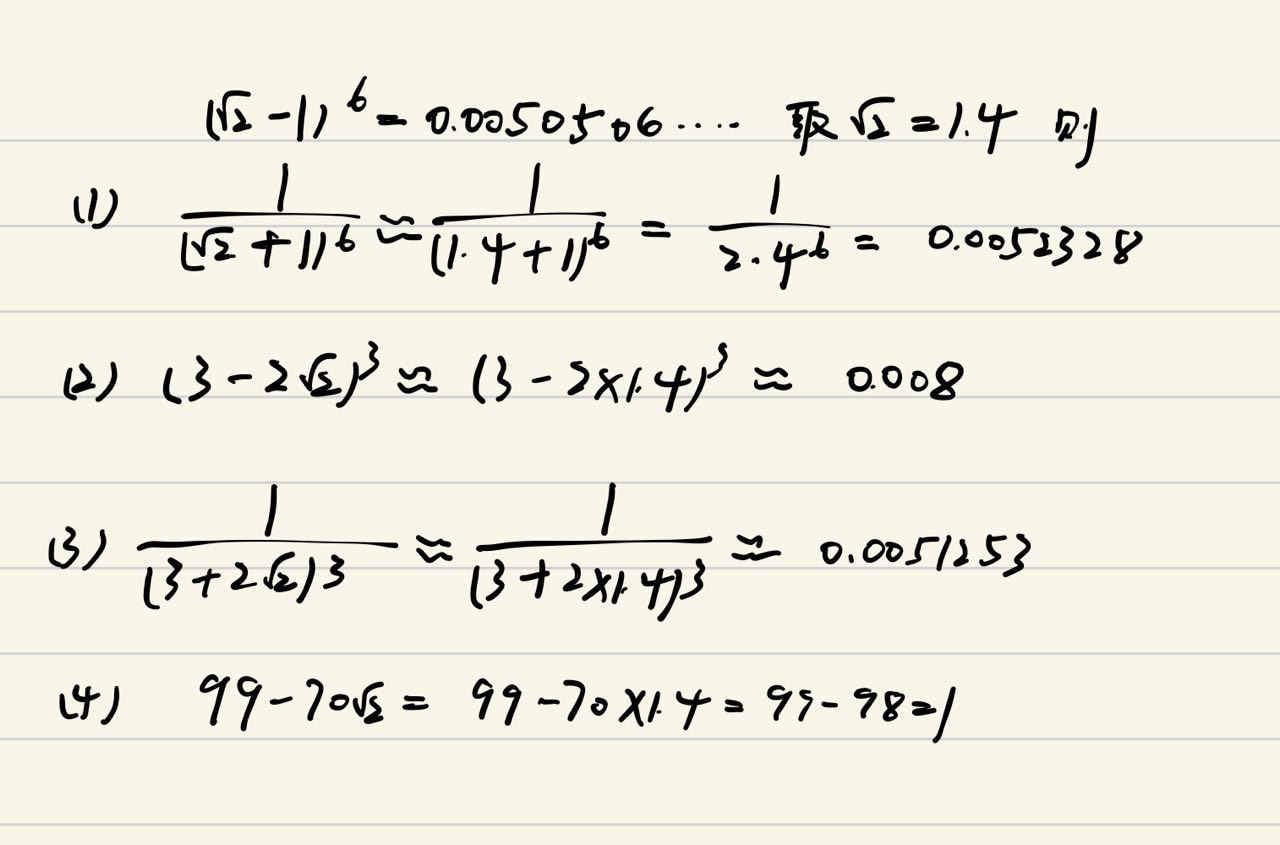 (√2 - 1)^6 = 0.0050506.... 取 √2 = 1.4 则
(1) 1/(√2 + 1)^6 ≈ 1/(1.4 + 1)^6 = 1/2.4^6 = 0.0052328
(2) (3 - 2√2)^3 ≈ (3 - 2×1.4)^3 ≈ 0.008
(3) 1/(3 + 2√2)^3 ≈ 1/(3 + 2×1.4)^3 ≈ 0.0051253
(4) 99 - 70√2 = 99 - 70×1.4 = 99 - 98 = 1